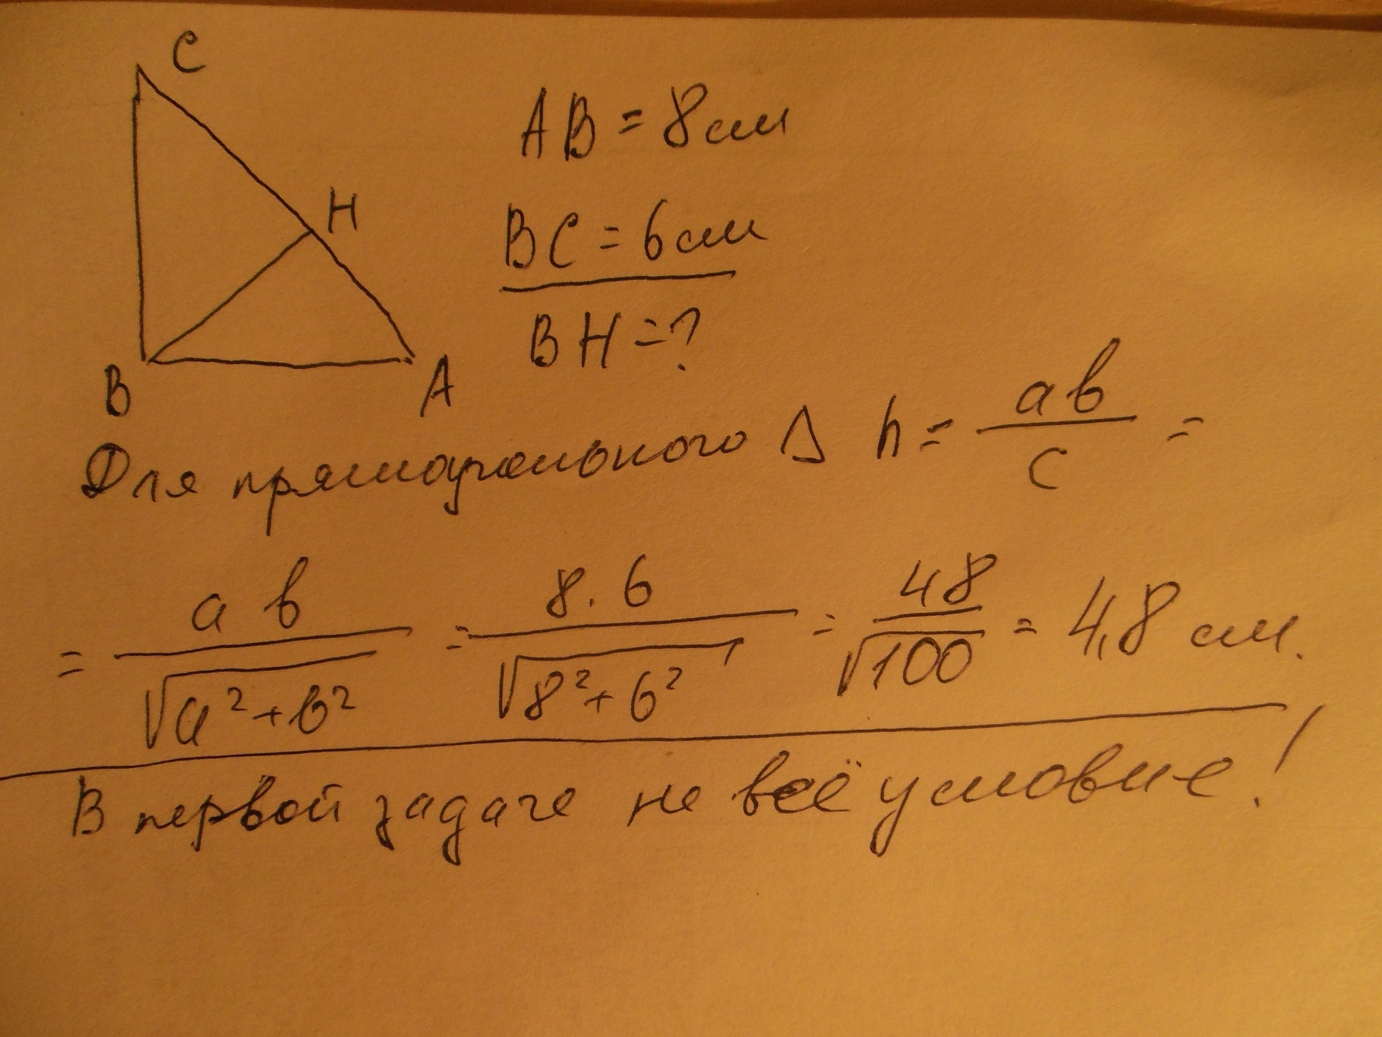 C
H
B
A
AB = 8 см
BC = 6 см
BH = ?
Для прямоугольного Δ h = ab/c =
= ab/√a²+b² = 8·6/√8²+6² = 48/√100 = 4,8 см.
В первой задаче не всё условие!